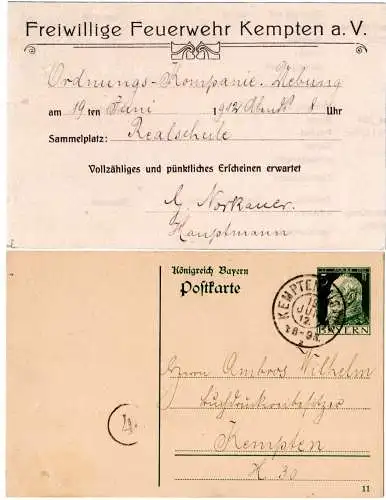 Freiwillige Feuerwehr Kempten a. V.
Ordnungs-Kompanie-Uebung
am 19ten Juni 1912 Abends 8 Uhr
Sammelplatz: Realschule
Vollzähliges und pünktliches Erscheinen erwartet
Norkauer.
Hauptmann
Königreich Bayern
Postkarte
KEMPTEN
JUN
12.
BAYERN
5
Herrn Ambros Wilhelm
Buchdruckereibesitzer
Kempten
H 30
11